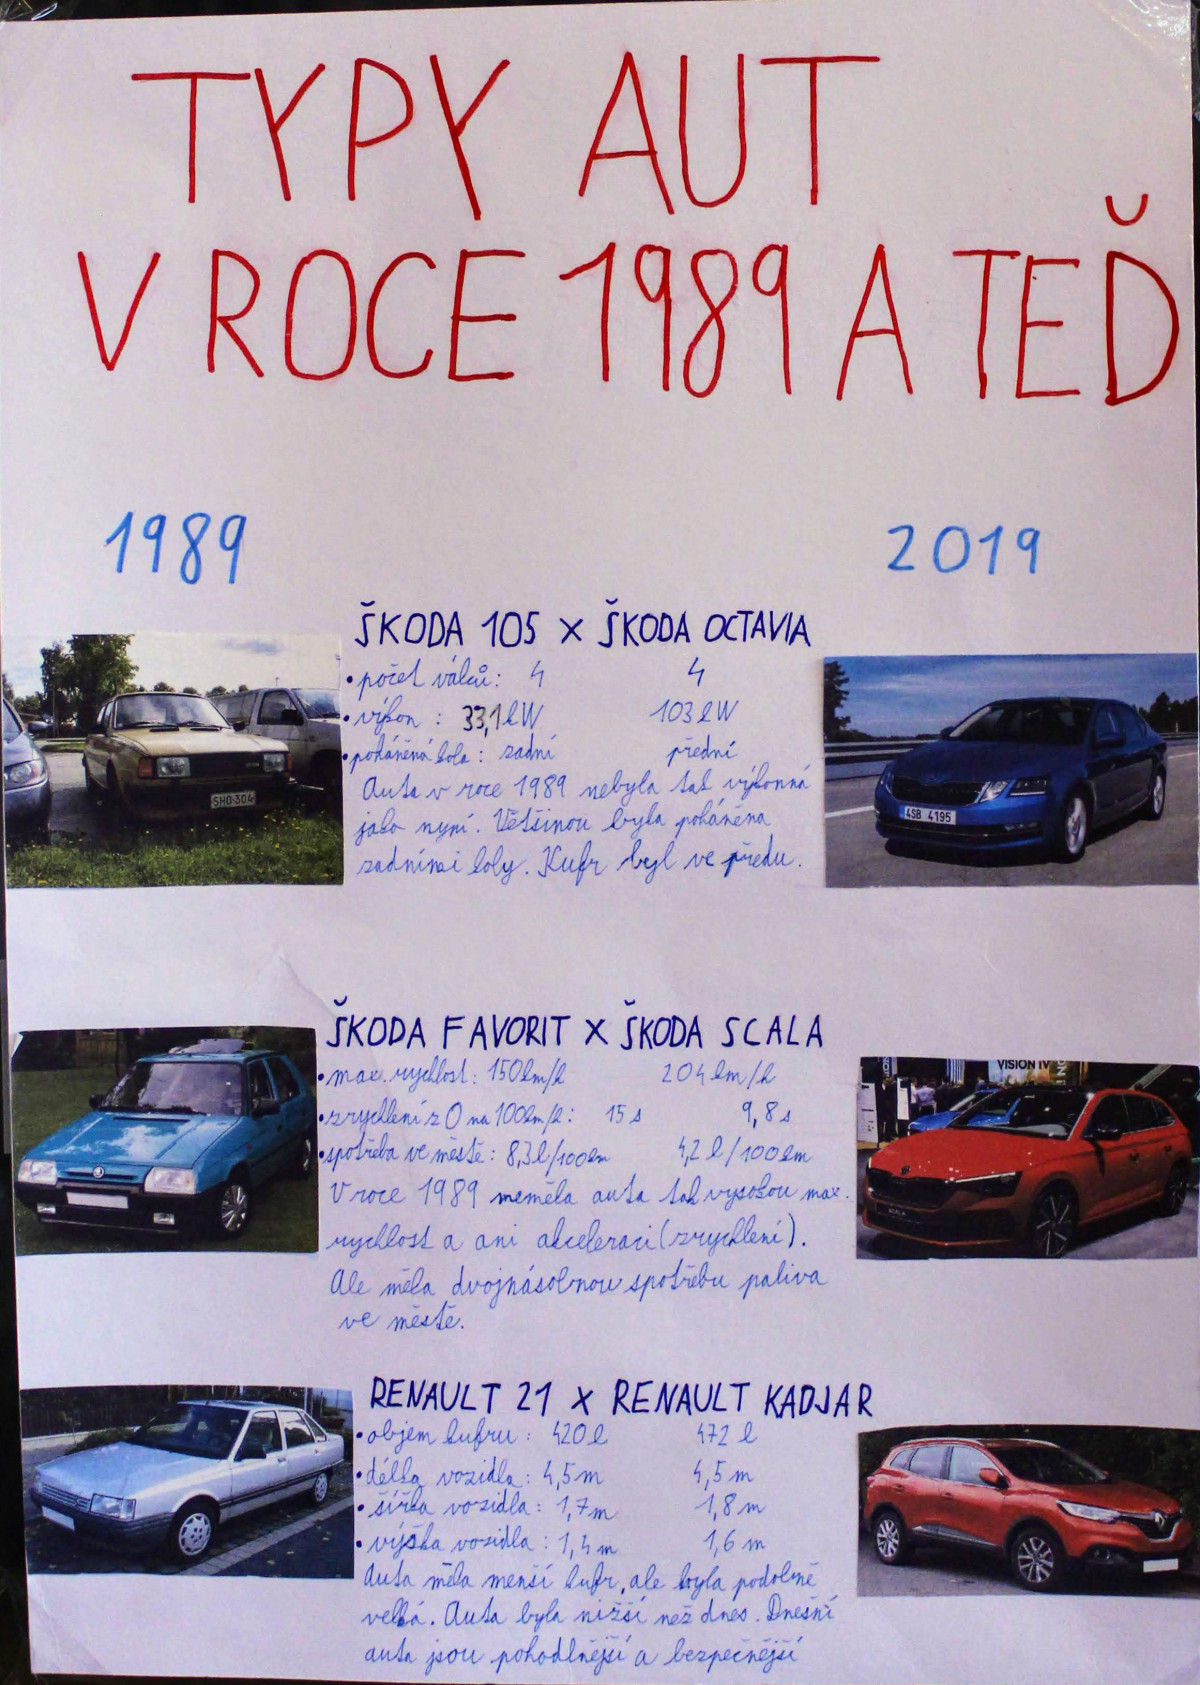 TYPY AUT
V ROCE 1989 A TEĎ
1989
2019
ŠKODA 105 x ŠKODA OCTAVIA
• počet válců: 4 4
• výkon : 33,1kW 103kW
• poháněná kola : zadní přední
Auta v roce 1989 nebyla tak výkonná
jako nyní. Většinou byla poháněna
zadními koly. Kufr byl ve předu.
SHO-304
4SB 4195
ŠKODA FAVORIT X ŠKODA SCALA
• max. rychlost : 150km/h 204km/h
• zrychlení z 0 na 100km/h: 15 s 9,8s
• spotřeba ve městě : 8,3l/100km 4,2 l/100km
V roce 1989 neměla auta tak vysokou max.
rychlost a ani akceleraci (zrychlení).
Ale měla dvojnásobnou spotřebu paliva
ve městě.
VISION IV
SCALA
RENAULT 21 X RENAULT KADJAR
• objem kufru : 420l 472 l
• délka vozidla : 4,5m 4,5m
• šířka vozidla : 1,7m 1,8m
• výška vozidla : 1,4m 1,6 m
Auta měla menší kufr, ale byla podobně
velká. Auta byla nižší než dnes. Dnešní
auta jsou pohodlnější a bezpečnější